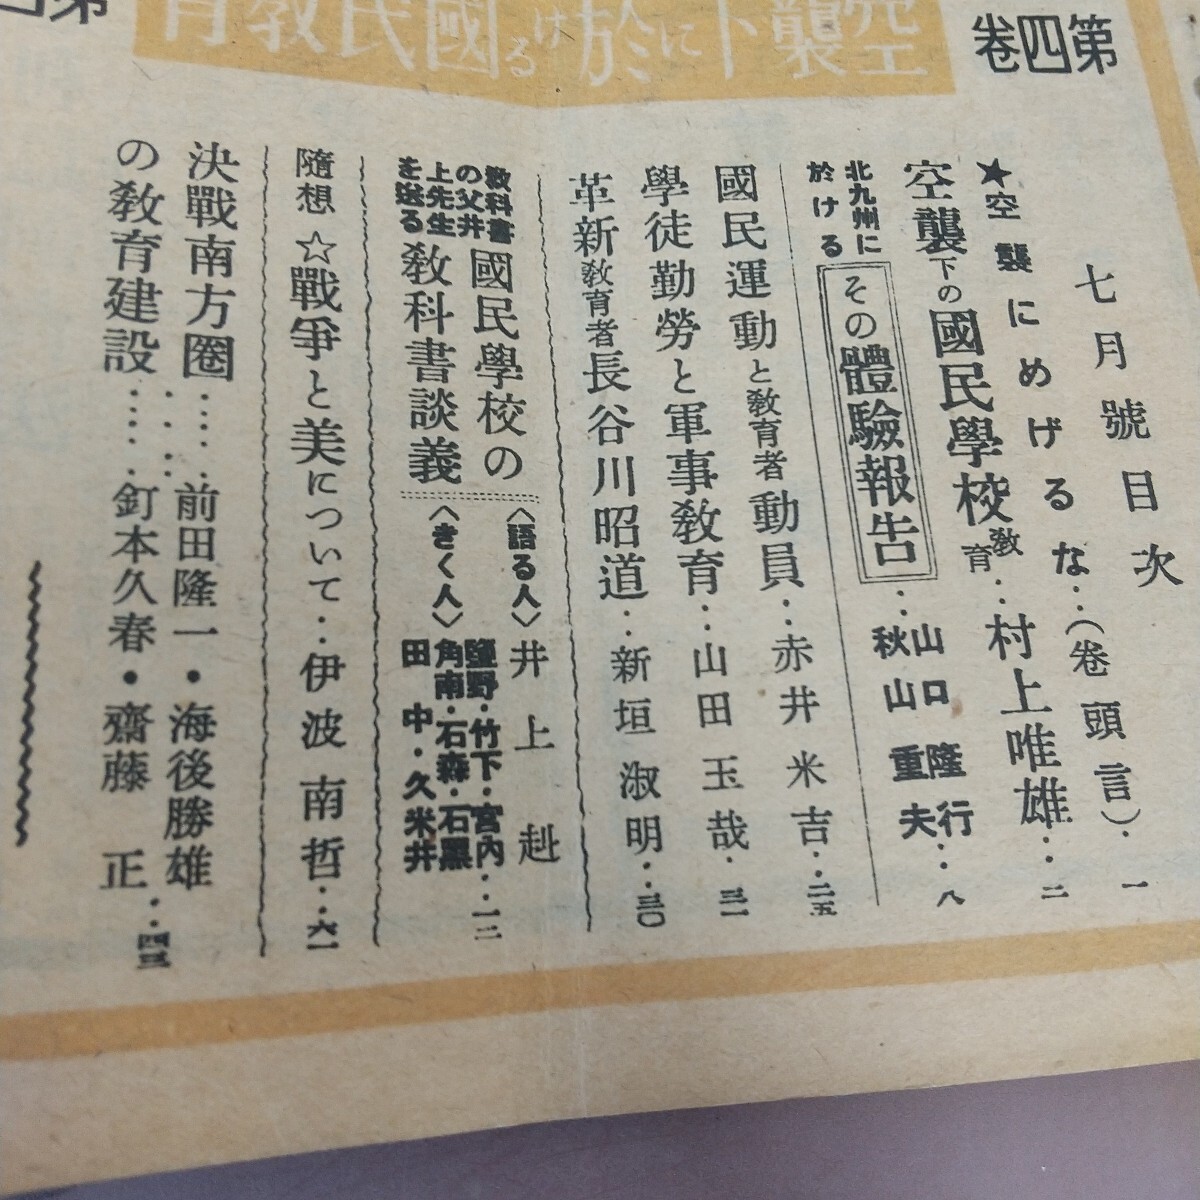 空襲下に於ける國民教育
第四卷
七月號目次
★空襲にめげるな‥(卷頭言)‥一
空襲下の國民學校教育‥村上唯雄‥二
北九州に於ける
その體驗報告‥山口隆行
秋山重夫‥八
國民運動と教育者動員‥赤井米吉‥二五
學徒勤勞と軍事教育‥山田玉哉‥三一
革新教育者長谷川昭道‥新垣淑明‥三〇
教科書の父井上先生を送る
國民學校の教科書談義
〈語る人〉井上赳
〈きく人〉鹽野・竹下・宮内
角南・石森・石黒
田中・久米井‥一二
隨想☆戰爭と美について‥伊波南哲‥六一
決戰南方圈の教育建設
前田隆一・海後勝雄
釘本久春・齋藤正‥四三